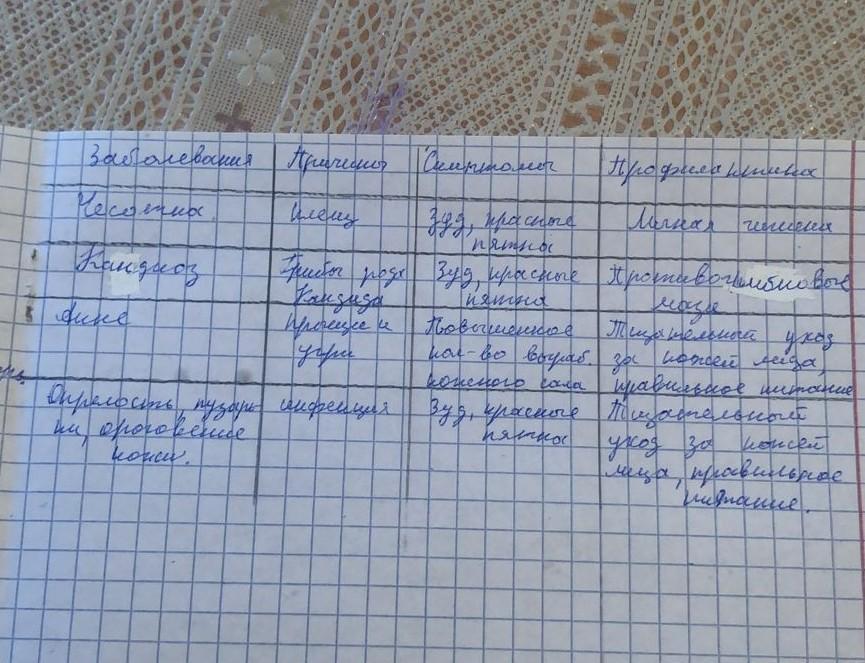 Заболевания Причины Симптомы Профилактика
Чесотка клещ Зуд, красные пятна Личная гигиена
Кандидоз Грибы рода Кандида Зуд, красные пятна Противогрибковые мази
Акне прыщи и угри Повышенное кол-во выраб. кожного сала Тщательный уход за кожей лица, правильное питание
Опрелость, пузырьки, ороговение кожи. инфекция Зуд, красные пятна Тщательный уход за кожей лица, правильное питание.